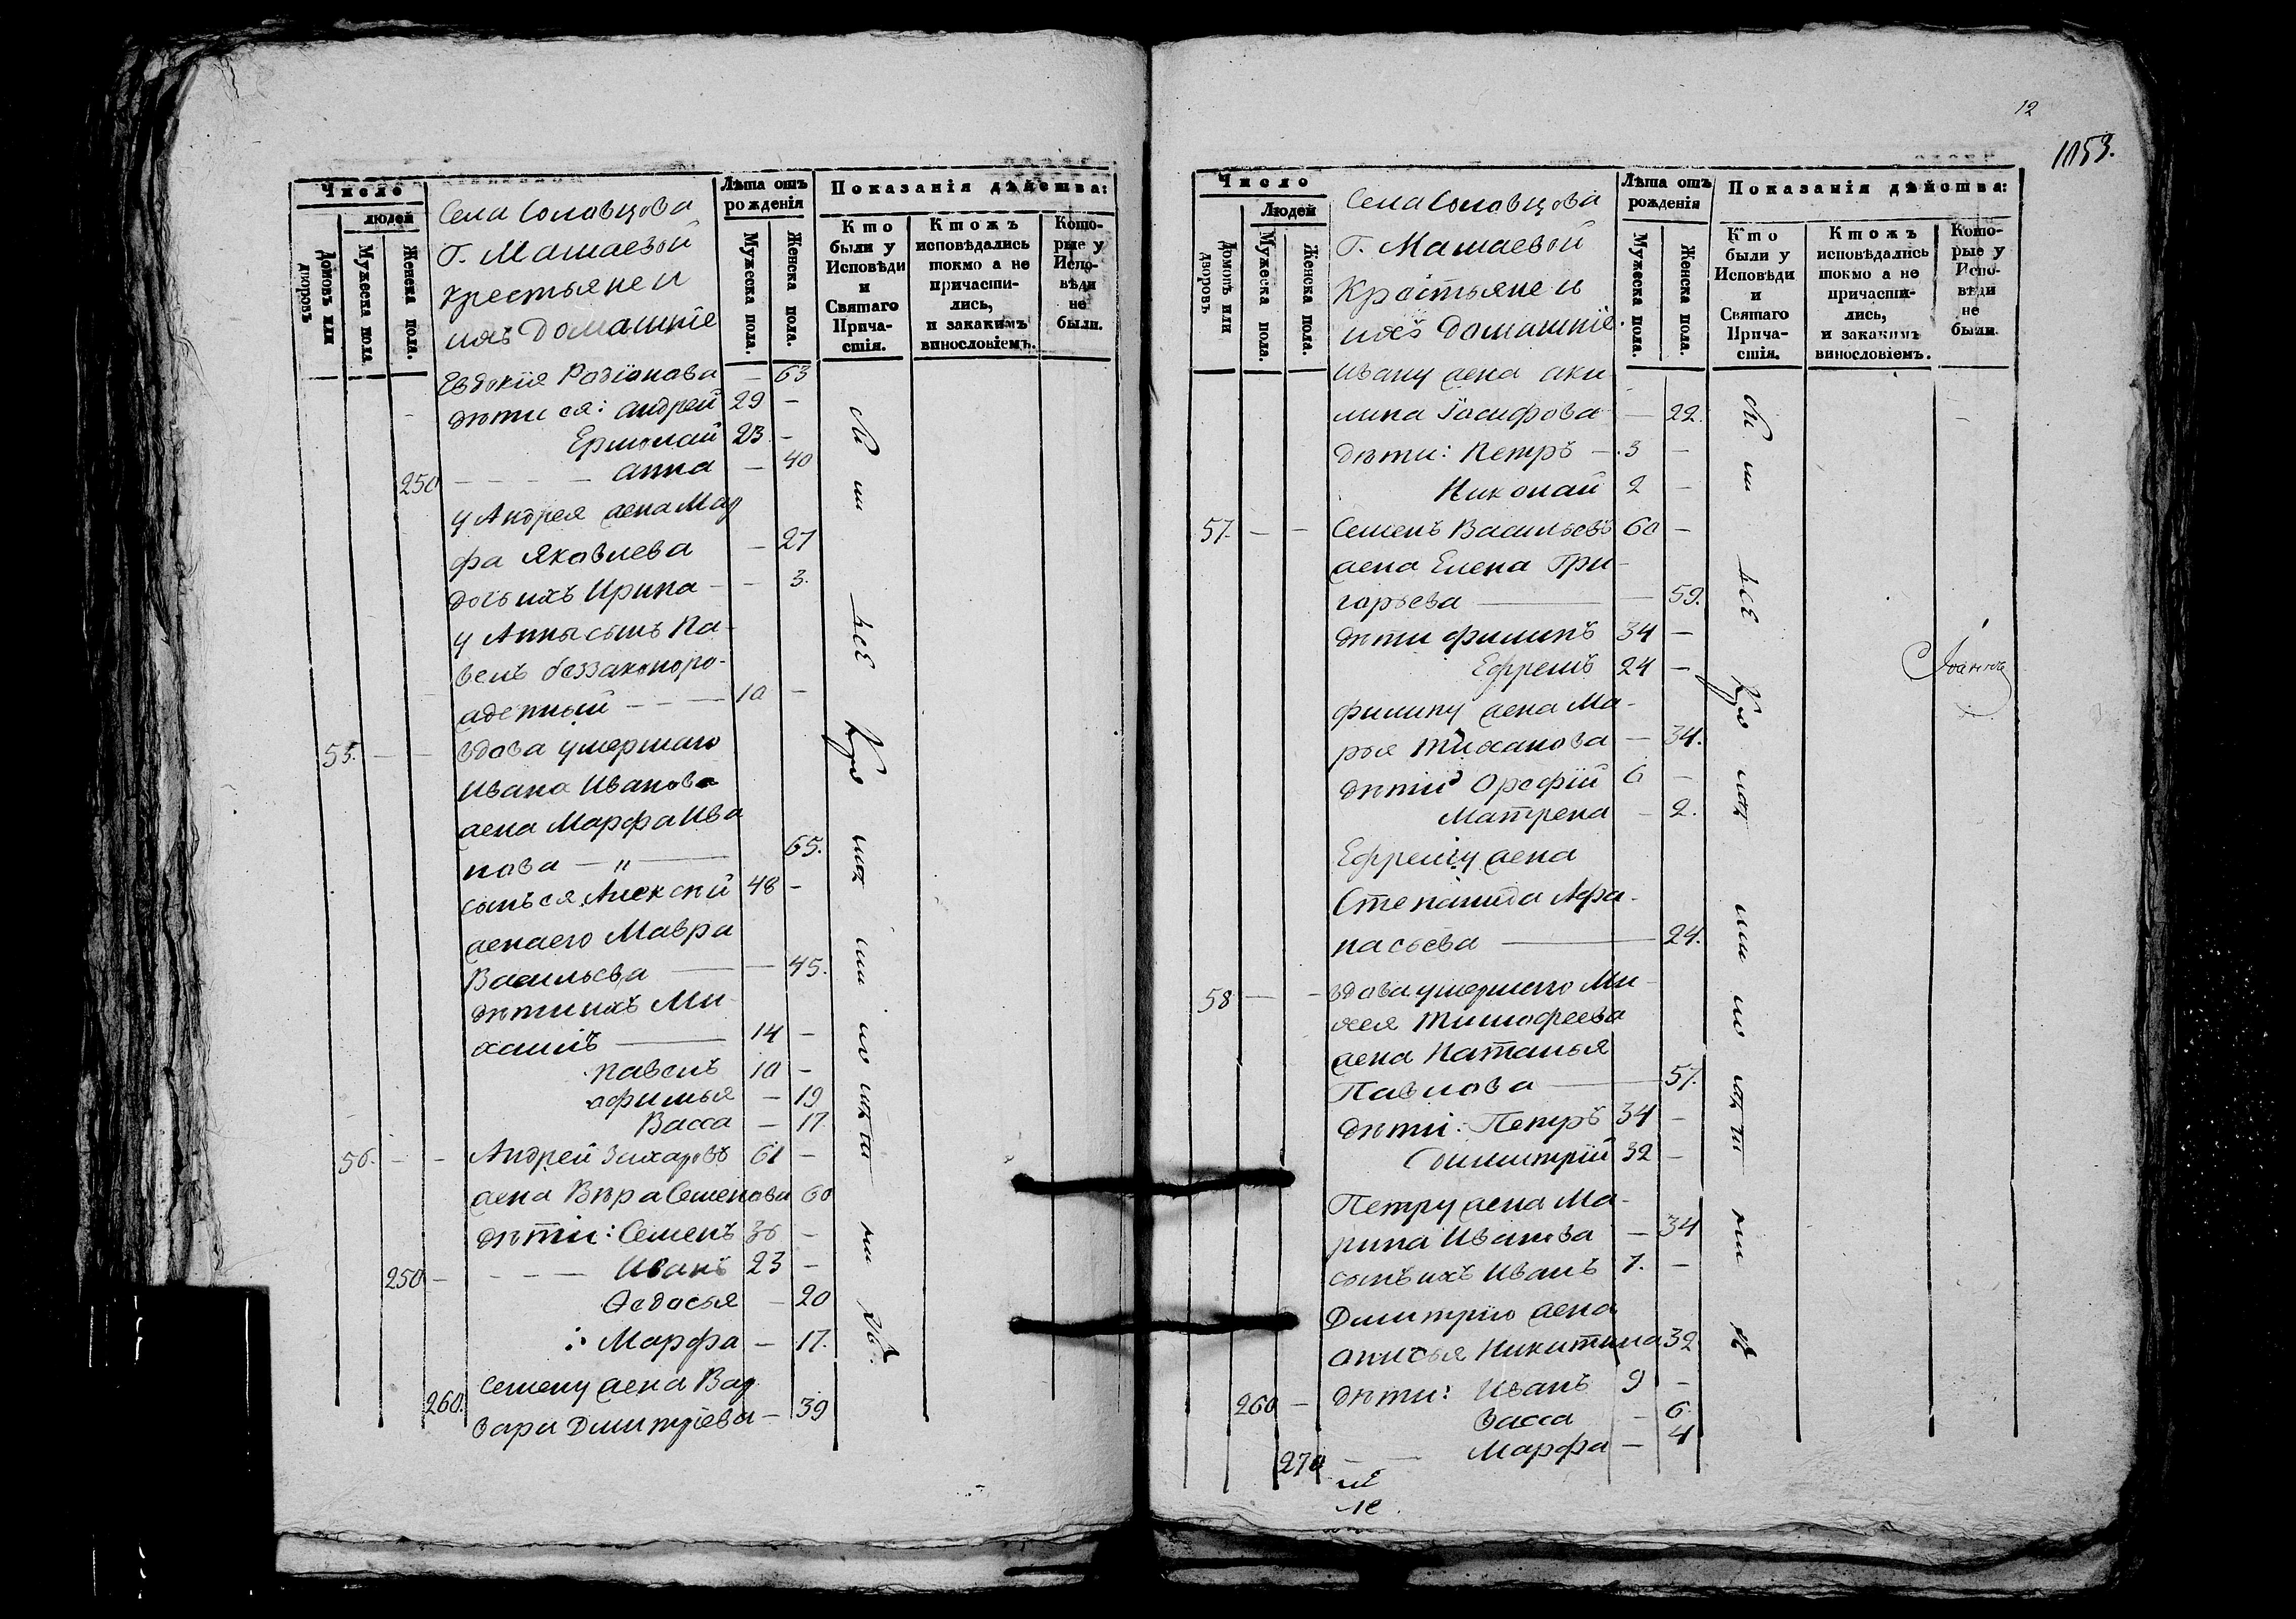 Число
людей
Домовъ или дворовъ
Мужеска пола.
Женска пола.
Села Соловцова
Г. Машаевой
крестьяне и
ихъ домашніе
Лѣта отъ рожденія
Мужеска пола.
Женска пола.
Показанія дѣйства:
Кто были у Исповѣди и Святаго Прича-стія.
Ктожъ исповѣдались токмо а не причасти-лись, и закакимъ винословіемъ.
Кото-рые у Испо-вѣди не были.
Евдокія Родіонова — 63
дѣти ея: Андрей 29 —
Ермолай 23 —
250 Анна — 40
у Андрея жена Мар
фа Яковлева — 27
дочь ихъ Ирина — 3.
у Анны сынъ Па-
велъ беззаконоро-
жденный — 10 —
55. — — вдова умершаго
Ивана Иванова
жена Марфа Ива
нова — 65.
сынъ ея Алексѣй 48 —
жена его Мавра
Васильева — 45.
дѣти ихъ Ми-
хаилъ 14 —
Павелъ 10 —
Афимья — 19
Васса — 17
56. — — Андрей Захаровъ 61 —
жена Вѣра Семенова 60
дѣти: Семенъ 36 —
250 — Иванъ 23 —
Ѳедосья — 20
Марфа — 17.
260. Семену жена Вар
вара Дмитріева — 39
12
1053.
Число
Людей
Домовъ или дворовъ
Мужеска пола.
Женска пола.
Села Соловцова
Г. Машаевой
Крестьяне и
ихъ домашніе
Лѣта отъ рожденія
Мужеска пола.
Женска пола.
Показанія дѣйства:
Кто были у Исповѣди и Святаго Прича-стія.
Ктожъ исповѣдались токмо а не причасти-лись, и закакимъ винословіемъ.
Кото-рые у Испо-вѣди не были.
Ивану жена Аку
лина Іосифова — 22.
дѣти: Петръ — 3 —
Николай 2 —
57. — — Семенъ Васильевъ 60 —
жена Елена Гри-
горьева — 59.
дѣти Филипъ 34 —
Ефремъ 24 —
Филипу жена Ма-
рья Тиханова — 34.
дѣти Орефій 6 —
Матрена — 2.
Ефрему жена
Степанида Афа-
насьева — 24.
58 — — вдова умершаго Ми-
хея Тимофеева
жена Наталья
Павлова — 57.
дѣти: Петръ 34 —
Димитрій 32 —
Петру жена Ма-
рина Иванова — 34
сынъ ихъ Иванъ 7. —
Дмитрію жена
Анисья Никитина 32
260 — дѣти: Иванъ 9 —
Васса — 6.
270 Марфа — 4